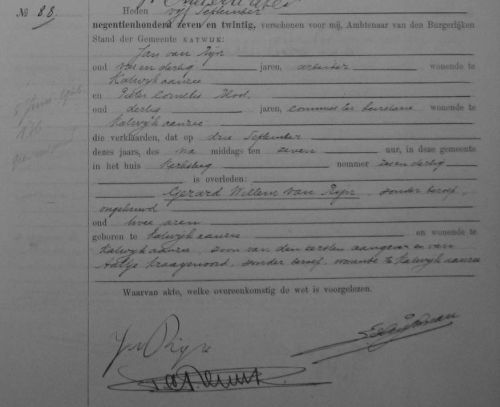 No 88. Heden vijf September
negentienhonderd zeven en twintig, verschenen voor mij, Ambtenaar van den Burgerlijken
Stand der Gemeente KATWIJK:
Jan van Rijn
oud jaren, arbeider wonende te
Katwijk aan Zee
en Pieter Cornelis
oud dertig jaren, commies ter wonende te
Katwijk aan Zee
die verklaarden, dat op drie September
dezes jaars, des na middags ten zeven uur, in deze gemeente
in het huis Kerksteeg nommer zeven dertig
is overleden:
Gerard Willem van Rijn, zonder beroep,
ongehuwd
oud twee jaren
geboren te Katwijk aan Zee en wonende te
Katwijk aan Zee, zoon van den eersten aangever en van
Aaltje Kraayenoord, zonder beroep, wonende te Katwijk aan Zee
Waarvan akte, welke overeenkomstig de wet is voorgelezen.
J v Rijn